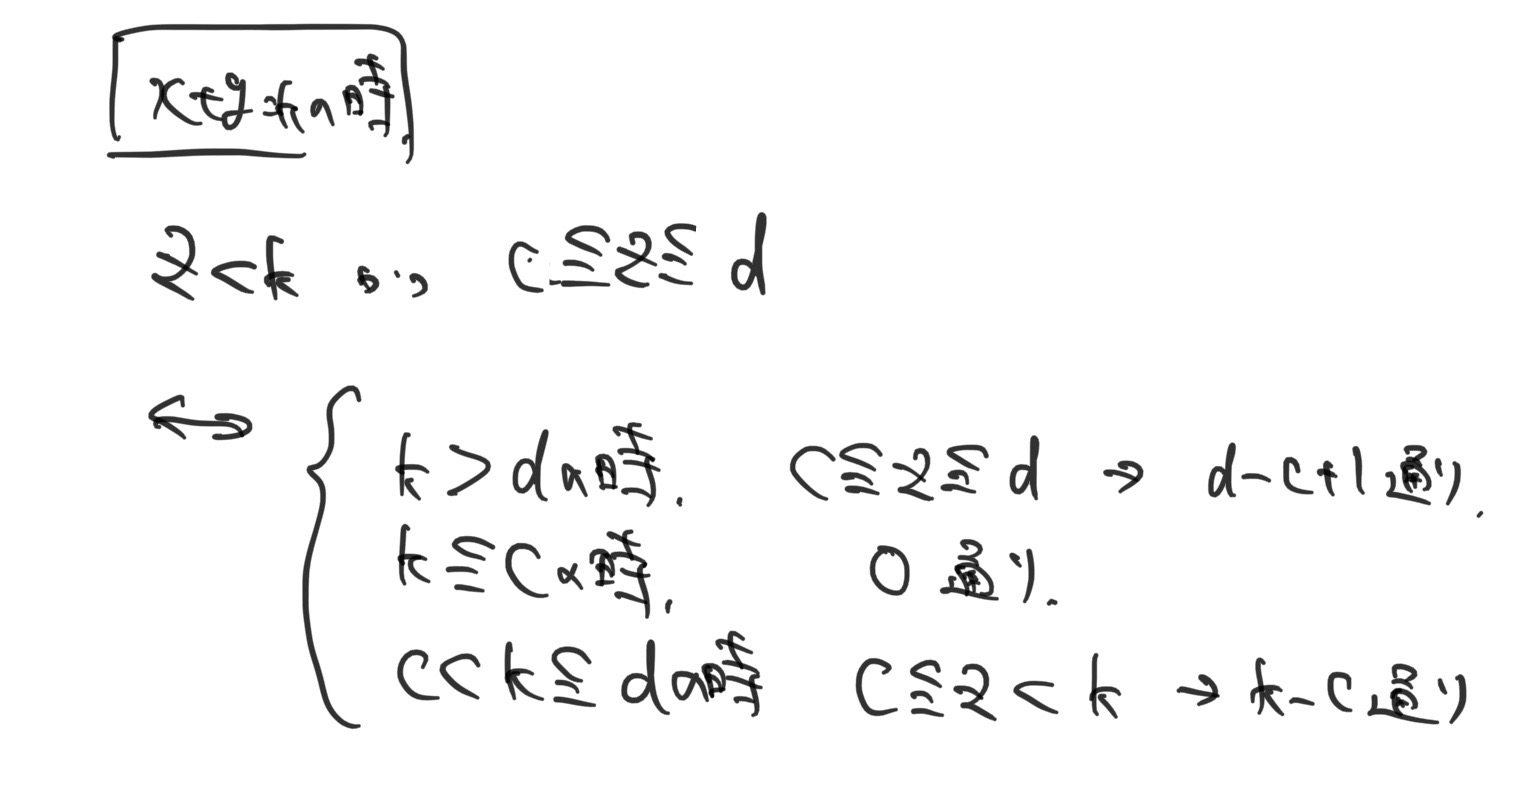 x+y=kの時
z<k かつ c≦z≦d
⇔ { k>dの時. c≦z≦d → d-c+1通り.
k≦cの時. 0通り.
c<k≦dの時 c≦z<k → k-c通り